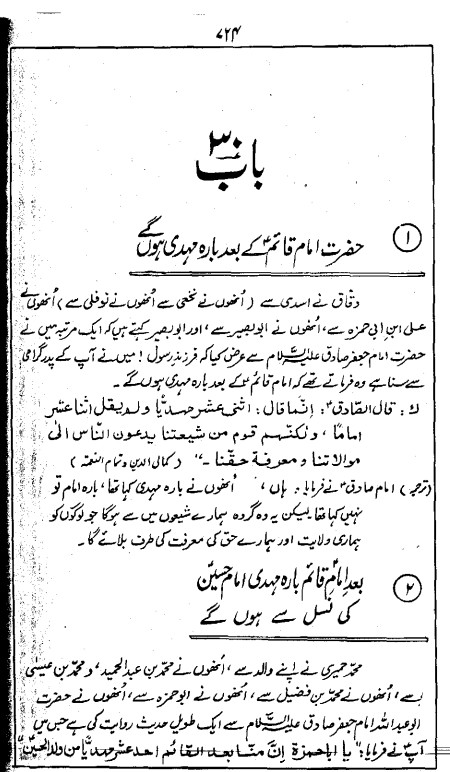 ۷۲۴
باب ۳۰
۱
حضرت امام قائمؑ کے بعد بارہ مہدی ہوں گے
دقاق نے اسدی سے (اُنھوں نے نخعی سے اُنھوں نے نوفلی سے) اُنھوں نے
علی ابنِ ابی حمزہ سے، اُنھوں نے ابوبصیر سے، اور ابوبصیر کہتے ہیں کہ ایک مرتبہ میں نے
حضرت امام جعفر صادق علیہ السلام سے عرض کیا کہ فرزندِ رسول! میں نے آپ کے پدرِ گرامی
سے سنا ہے وہ فرماتے تھے کہ امام قائمؑ کے بعد بارہ مہدی ہوں گے۔
قال الصّادقؑ: اِنّما قال: اثنیٰ عشر مهديًّا ولم يقل اثنا عشر
امامًا، ولكنّهم قوم من شيعتنا يدعون النّاس الیٰ
موالاتنا و معرفة حقّنا۔" (کمالی الدین وتمام النعمۃ)
(ترجمہ) امام صادقؑ نے فرمایا: ہاں، اُنھوں نے بارہ مہدی کہا تھا، بارہ امام تو
نہیں کہا تھا لیکن یہ وہ گروہ ہمارے شیعوں میں سے ہوگا جو لوگوں کو
ہماری ولایت اور ہمارے حق کی معرفت کی طرف بلائے گا۔
۲
بعدِ امامِ قائمؑ بارہ مہدی امام حسینؑ
کی نسل سے ہوں گے
محمد حمیری نے اپنے والد سے، اُنھوں نے محمد بن عبدالحمید، و محمد بن عیسیٰ
سے، اُنھوں نے محمد بن فضیل سے، اُنھوں نے ابوحمزہ سے، اُنھوں نے حضرت
ابوعبداللہ امام جعفر صادق علیہ السلام سے ایک طویل حدیث روایت کی ہے جس میں
آپؑ نے فرمایا: "یا اباحمزة انّ منّا بعد القائم احد عشر مهديًّا من ولد الحسينؑ"